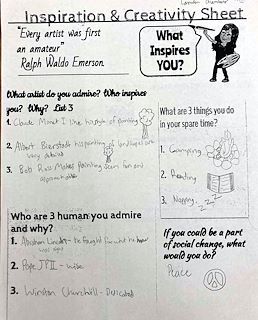 Inspiration & Creativity Sheet
"Every artist was first
an amateur"
Ralph Waldo Emerson
What
Inspires
YOU?
What artist do you admire? Who inspires
you? Why? List 3
1. Claude Monet I like his style of painting
2. Albert Bierstadt his painting of landscapes are
very
3. Bob Ross Makes painting seem fun and
approachable
What are 3 things you do
in your spare time?
1. Camping
2. Reading
3. Napping
Who are 3 human you admire
and why?
1. Abraham Lincoln - he fought for what he
was right
2. Pope JP II - wise
3. Winston Churchill - Dedicated
If you could be a part
of social change, what
would you do?
Peace